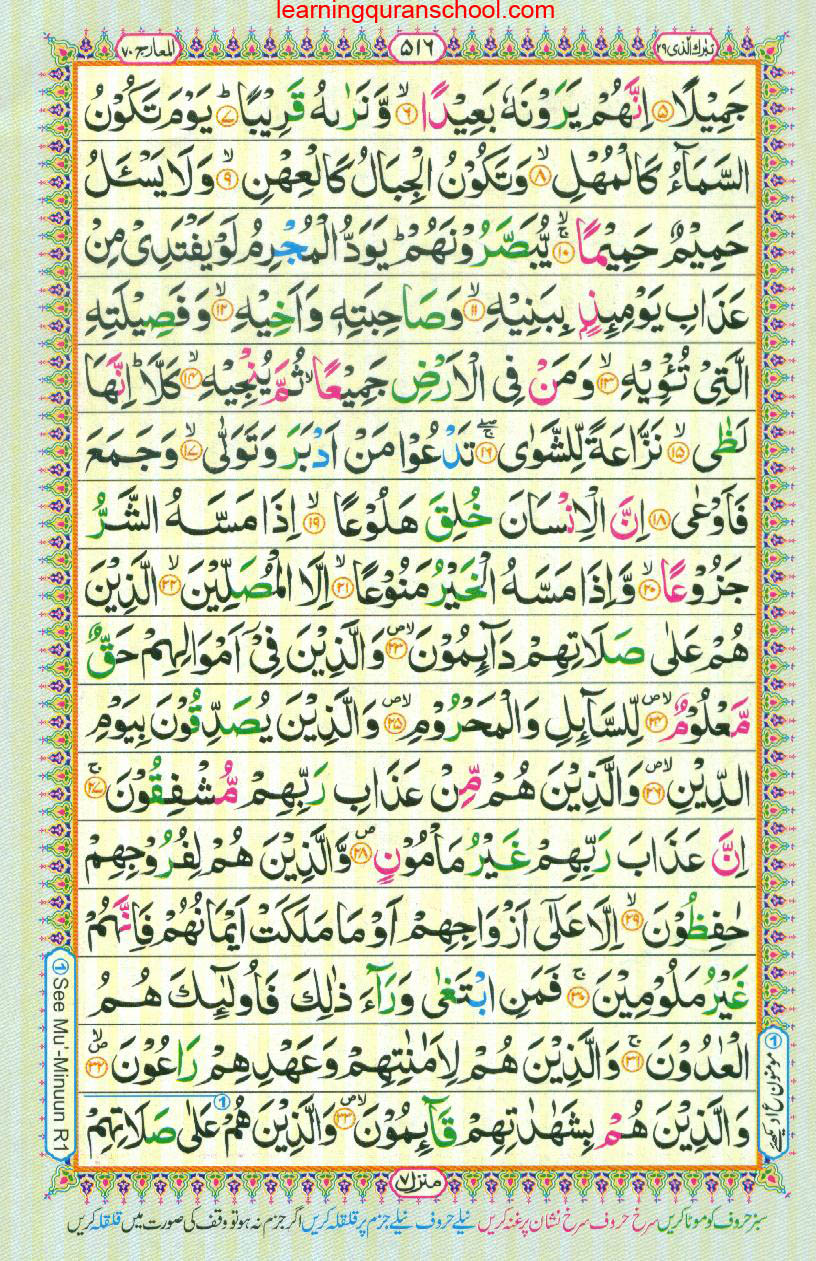 learningquranschool.com
تبٰرك الذی ٢٩
٥١٦
المعارج ٧٠
جَمِيْلًا ﴿٥﴾ اِنَّهُمْ يَرَوْنَهٗ بَعِيْدًا ﴿٦﴾ وَّنَرٰىهُ قَرِيْبًا ﴿٧﴾ يَوْمَ تَكُوْنُ
السَّمَآءُ كَالْمُهْلِ ﴿٨﴾ وَتَكُوْنُ الْجِبَالُ كَالْعِهْنِ ﴿٩﴾ وَلَا يَسْـَٔلُ
حَمِيْمٌ حَمِيْمًا ﴿١٠﴾ يُّبَصَّرُوْنَهُمْ ؕ يَوَدُّ الْمُجْرِمُ لَوْ يَفْتَدِىْ مِنْ
عَذَابِ يَوْمِئِذٍۭ بِبَنِيْهِ ﴿١١﴾ وَصَاحِبَتِهٖ وَاَخِيْهِ ﴿١٢﴾ وَفَصِيْلَتِهِ
الَّتِىْ تُـْٔوِيْهِ ﴿١٣﴾ وَمَنْ فِى الْاَرْضِ جَمِيْعًا ۙ ثُمَّ يُنْجِيْهِ ﴿١٤﴾ كَلَّا ؕ اِنَّهَا
لَظٰى ﴿١٥﴾ نَزَّاعَةً لِّلشَّوٰى ﴿١٦﴾ تَدْعُوْا مَنْ اَدْبَرَ وَتَوَلّٰى ﴿١٧﴾ وَجَمَعَ
فَاَوْعٰى ﴿١٨﴾ اِنَّ الْاِنْسَانَ خُلِقَ هَلُوْعًا ﴿١٩﴾ اِذَا مَسَّهُ الشَّرُّ
جَزُوْعًا ﴿٢٠﴾ وَّاِذَا مَسَّهُ الْخَيْرُ مَنُوْعًا ﴿٢١﴾ اِلَّا الْمُصَلِّيْنَ ﴿٢٢﴾ الَّذِيْنَ
هُمْ عَلٰى صَلَاتِهِمْ دَآئِمُوْنَ ﴿٢٣﴾ وَالَّذِيْنَ فِىْٓ اَمْوَالِهِمْ حَقٌّ
مَّعْلُوْمٌ ﴿٢٤﴾ لِّلسَّآئِلِ وَالْمَحْرُوْمِ ﴿٢٥﴾ وَالَّذِيْنَ يُصَدِّقُوْنَ بِيَوْمِ
الدِّيْنِ ﴿٢٦﴾ وَالَّذِيْنَ هُمْ مِّنْ عَذَابِ رَبِّهِمْ مُّشْفِقُوْنَ ﴿٢٧﴾
اِنَّ عَذَابَ رَبِّهِمْ غَيْرُ مَاْمُوْنٍ ﴿٢٨﴾ وَّالَّذِيْنَ هُمْ لِفُرُوْجِهِمْ
حٰفِظُوْنَ ﴿٢٩﴾ اِلَّا عَلٰٓى اَزْوَاجِهِمْ اَوْ مَا مَلَكَتْ اَيْمَانُهُمْ فَاِنَّهُمْ
غَيْرُ مَلُوْمِيْنَ ﴿٣٠﴾ فَمَنِ ابْتَغٰى وَرَآءَ ذٰلِكَ فَاُولٰٓئِكَ هُمُ
الْعٰدُوْنَ ﴿٣١﴾ وَالَّذِيْنَ هُمْ لِاَمٰنٰتِهِمْ وَعَهْدِهِمْ رَاعُوْنَ ﴿٣٢﴾
وَالَّذِيْنَ هُمْ بِشَهٰدٰتِهِمْ قَآئِمُوْنَ ﴿٣٣﴾ وَالَّذِيْنَ هُمْ عَلٰى صَلَاتِهِمْ
① See Mu'-Minuun R1
① مومنون ع۱ دیکھئے
منزل ٧
سبز حروف کو موٹا کریں سرخ حروف سرخ نشان پر غنہ کریں نیلے حروف نیلے جزم پر قلقلہ کریں اگر جزم نہ ہو تو وقف کی صورت میں قلقلہ کریں